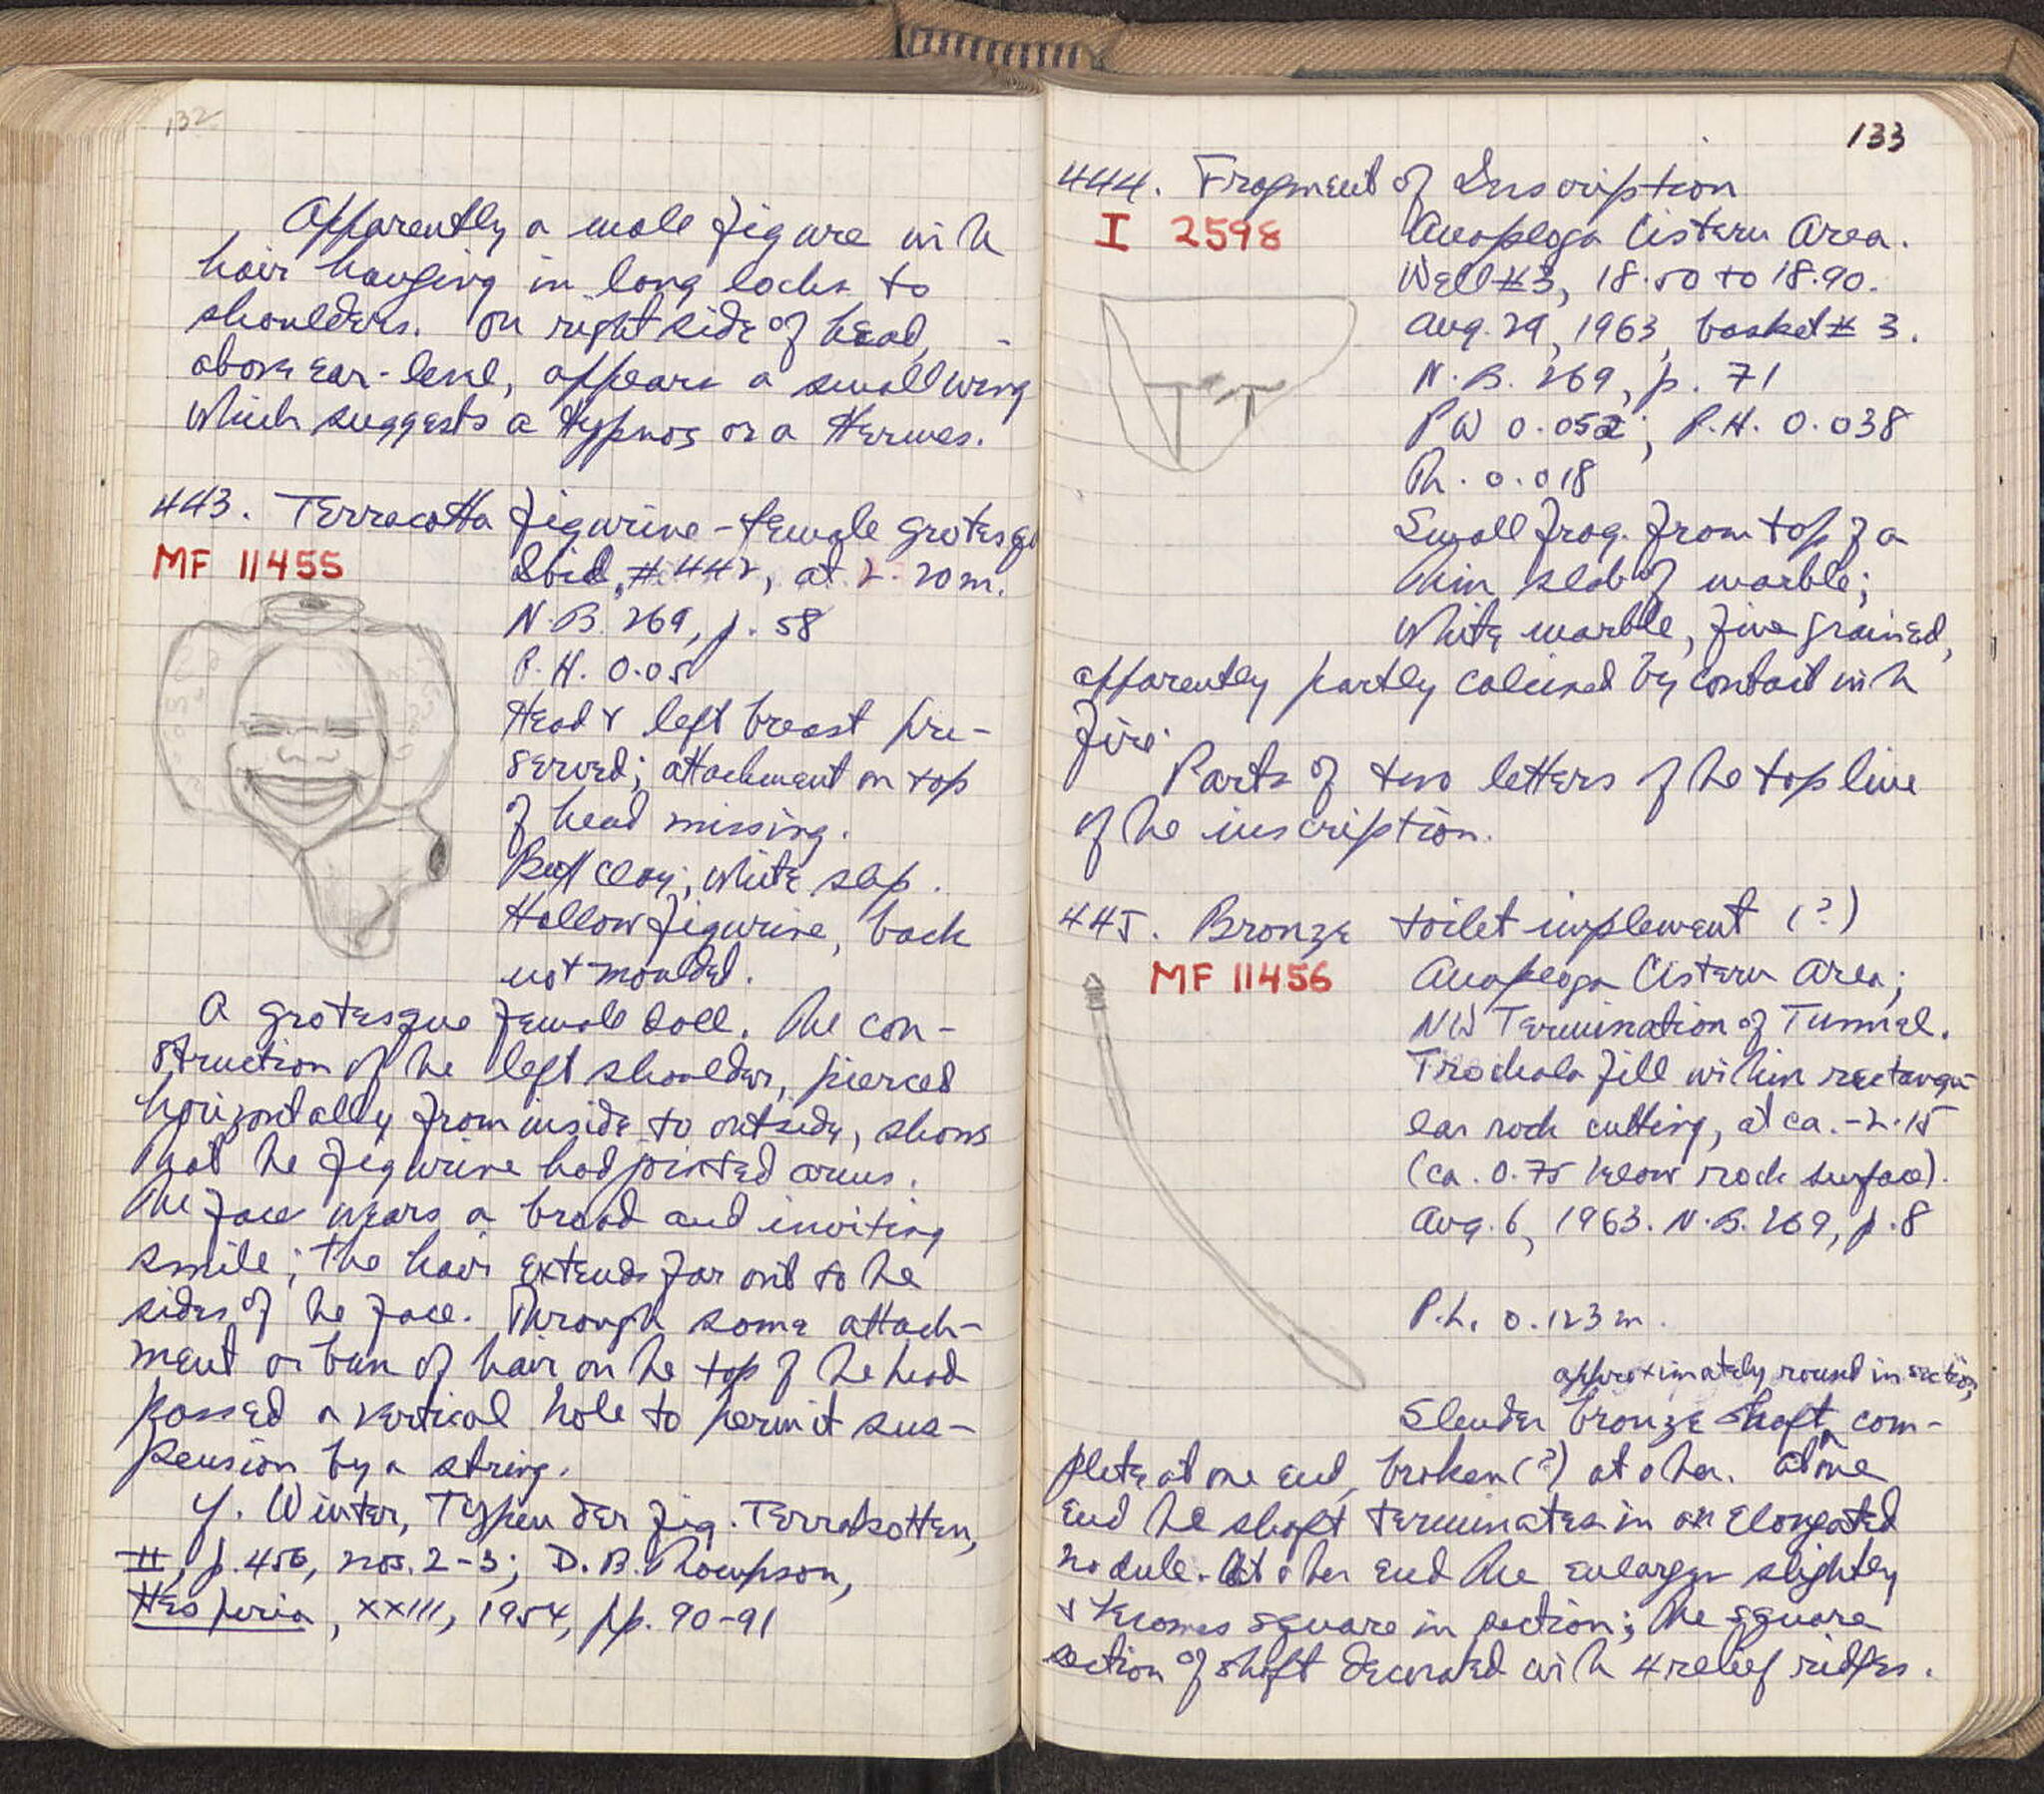 132
Apparently a male figure with
hair hanging in long locks to
shoulders. On right side of head,
above ear-level, appears a small wing
which suggests a Hypnos or a Hermes.
443. Terracotta figurine - female grotesque
MF 11455
Ibid, #442, at 2.20m.
N.B. 269, p. 58
P.H. 0.05
Head & left breast pre-
served; attachment on top
of head missing.
Buff clay; white slip.
Hollow figurine, back
not moulded.
A grotesque female doll. The con-
struction of the left shoulder, pierced
horizontally from inside to outside, shows
that the figurine had jointed arms.
The face wears a broad and inviting
smile; the hair extends far out to the
sides of the face. Through some attach-
ment or bun of hair on the top of the head
passed a vertical hole to permit sus-
pension by a string.
Cf. Winter, Typen der fig. Terrakotten,
II, p. 456, nos. 2-3; D. B. Thompson,
Hesperia, XXIII, 1954, pp. 90-91
133
444. Fragment of Inscription
I 2598
Anaploga Cistern Area.
Well #3, 18.50 to 18.90.
Aug. 29, 1963, basket # 3.
N.B. 269, p. 71
PW 0.052; P.H. 0.038
Th. 0.018
Small frag. from top of a
thin slab of marble;
white marble, fine grained,
apparently partly calcined by contact with
fire.
Parts of two letters of the top line
of the inscription.
445. Bronze toilet implement (?)
MF 11456
Anaploga Cistern Area;
NW Termination of Tunnel.
Trochala fill within rectangu-
lar rock cutting, at ca. -2.15
(ca. 0.75 below rock surface).
Aug. 6, 1963. N.B. 269, p. 8
P.L. 0.123m.
approximately round in section,
Slender bronze shaft ^ com-
plete at one end, broken (?) at other. At one
end the shaft terminates in an elongated
nodule. At other end the enlarges slightly
& becomes square in section; the square
section of shaft decorated with 4 relief ridges.